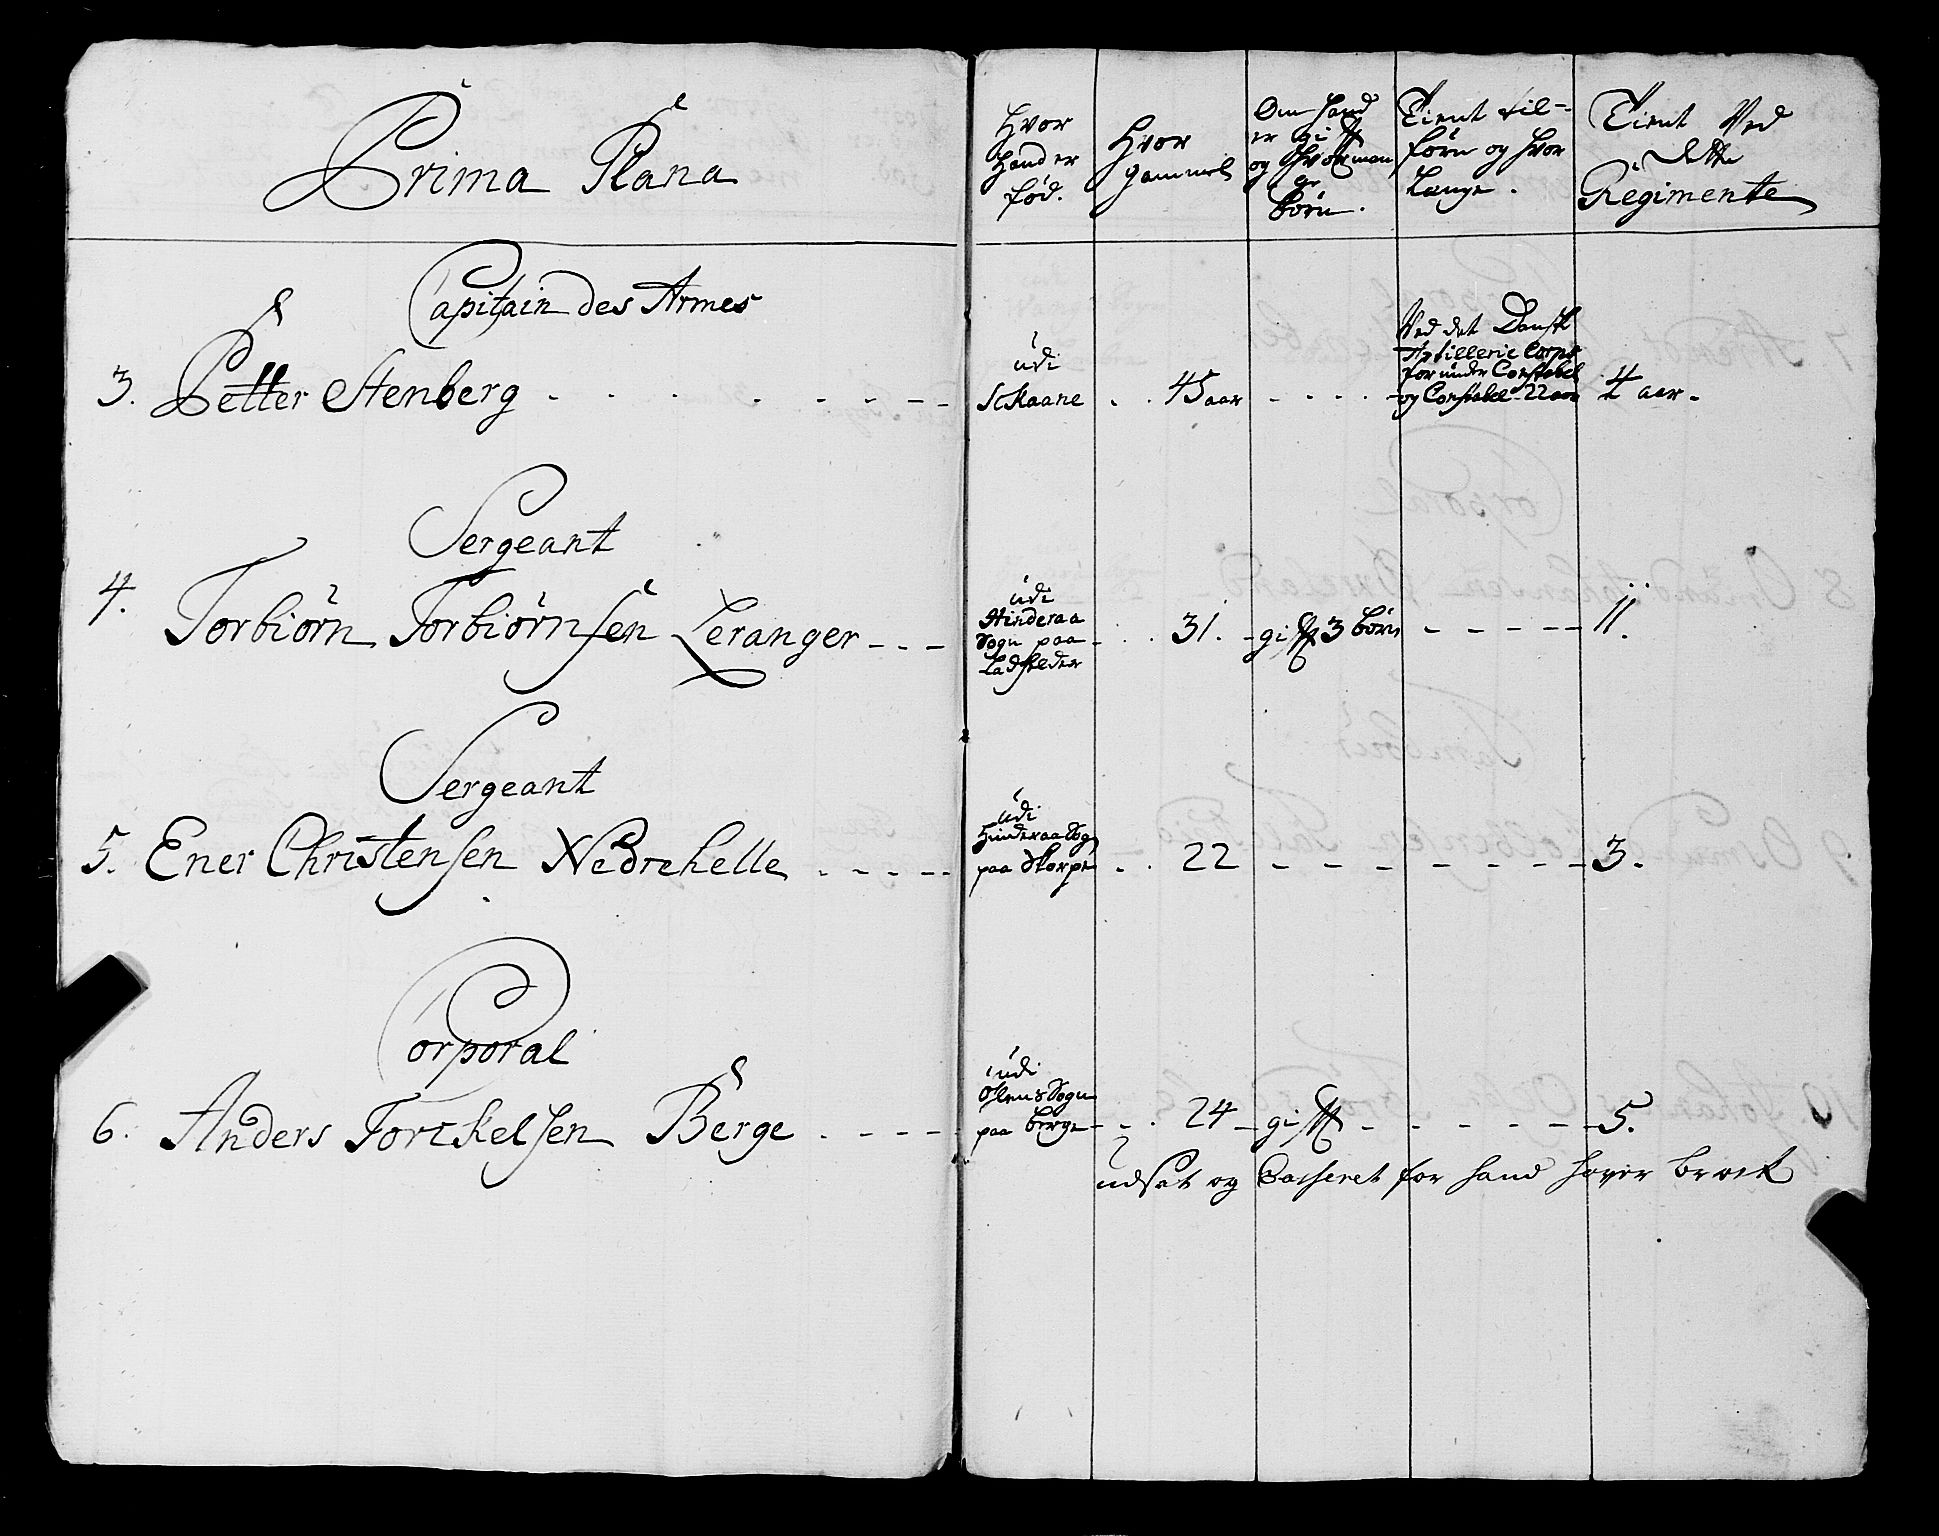 Prima Plana
Hvor
Hand er
fød.
Hvor
gammel
Om Hand
er gifft
og Hvor man
ge
børn.
Tient til-
förn og hvor
Lange.
Tient Ved
dette
Regimente
Capitain des Armes
3. Petter Stenberg
udi
Skaane
45 aar
Ved det Danske
Artillerie Corps
for under Constabel
og Constabel 22 aar
4 aar.
Sergeant
4. Torbiørn Torbiørnsen Leranger
udi
Hinderaa
Sogn paa
Ladsteder
31.
gifft 3 børn
11.
Sergeant
5. Ener Christensen Nedrehelle
udi
Hinderaa Sogn
paa Skorpe
22
3.
Corporal
6. Anders Torckelsen Berge
udi
Ølens Sogn
paa berge
24
gifft
5.
udsat og Casseret for hand haver brock